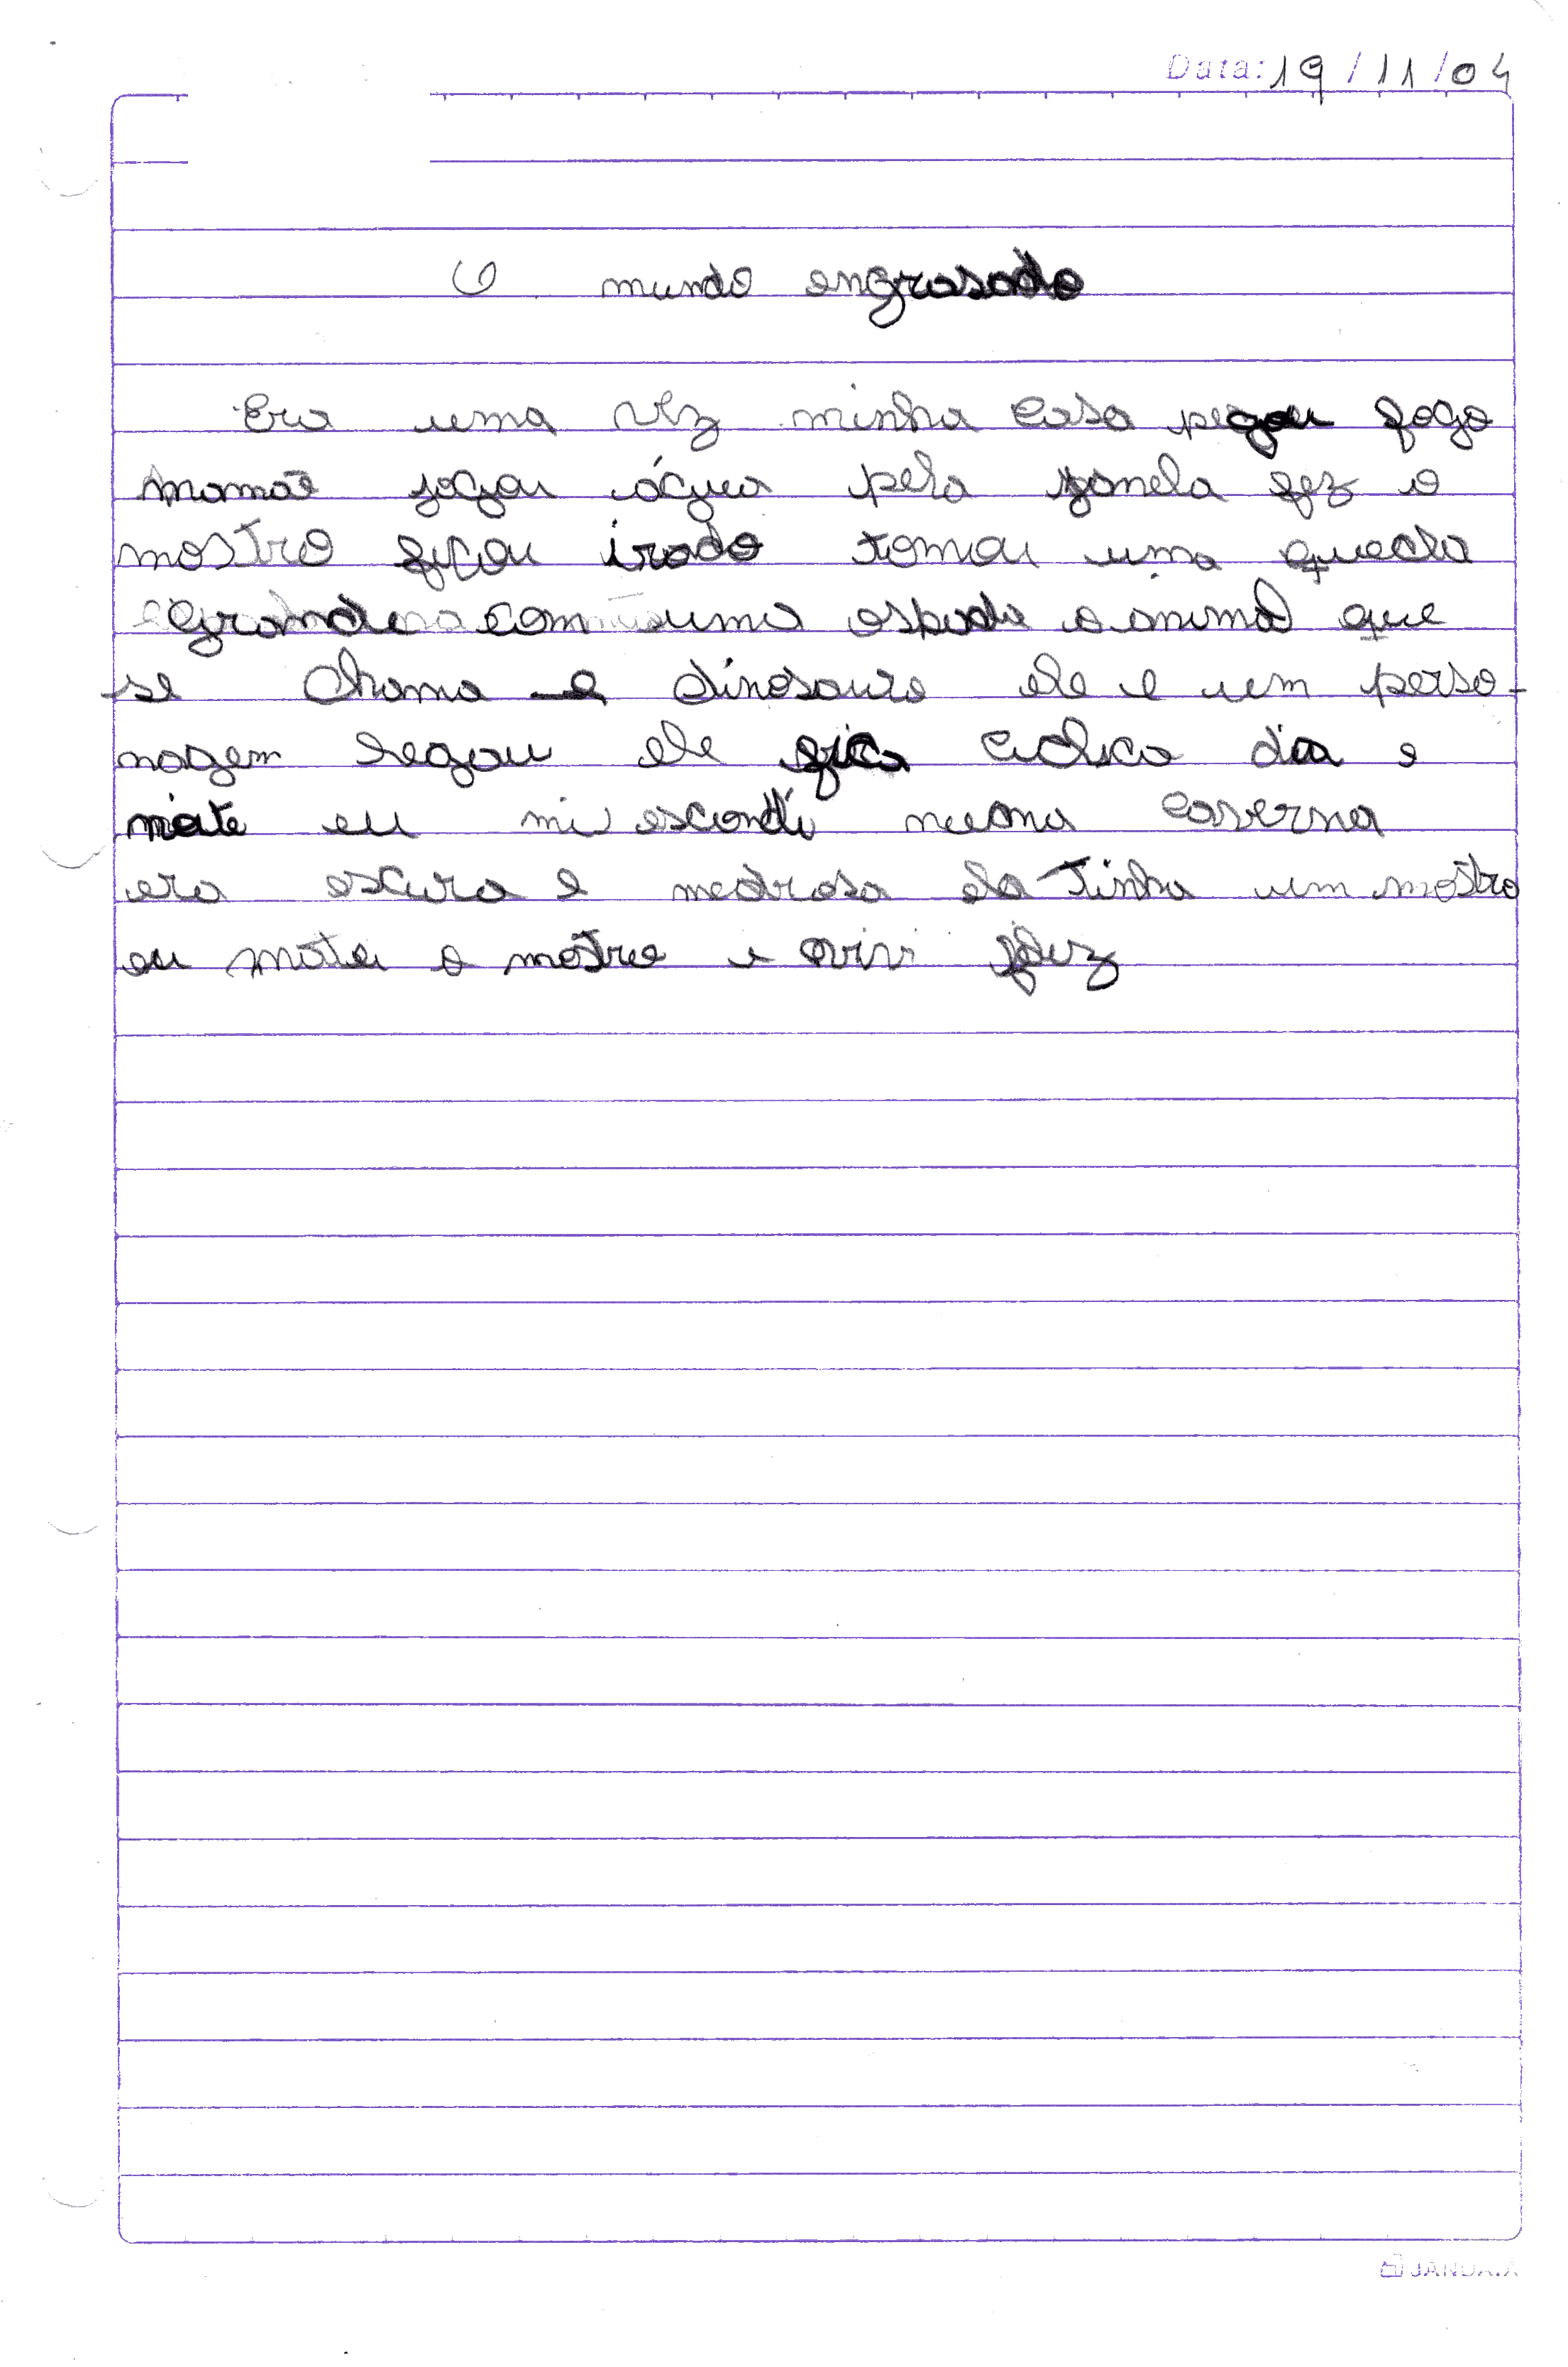 Data: 19/11/04
O mundo engrasado
Era uma vez minha casa pegou fogo
mamãe jogou água pela janela fez o
mostro ficou irado tomou uma queda
grande com uma espada o animal que
se chama dinosauro ele e um perso-
nagem legau ele fica dia e
noite eu mi escondi numa caverna
era escura e medrosa ela tinha um mostro
eu matei o mostro e vivi feliz